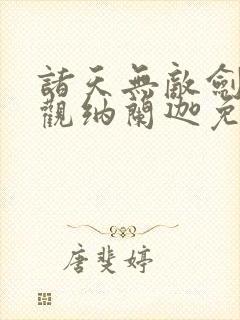 諸天無敵劍
觀納蘭迦免
唐斐婷